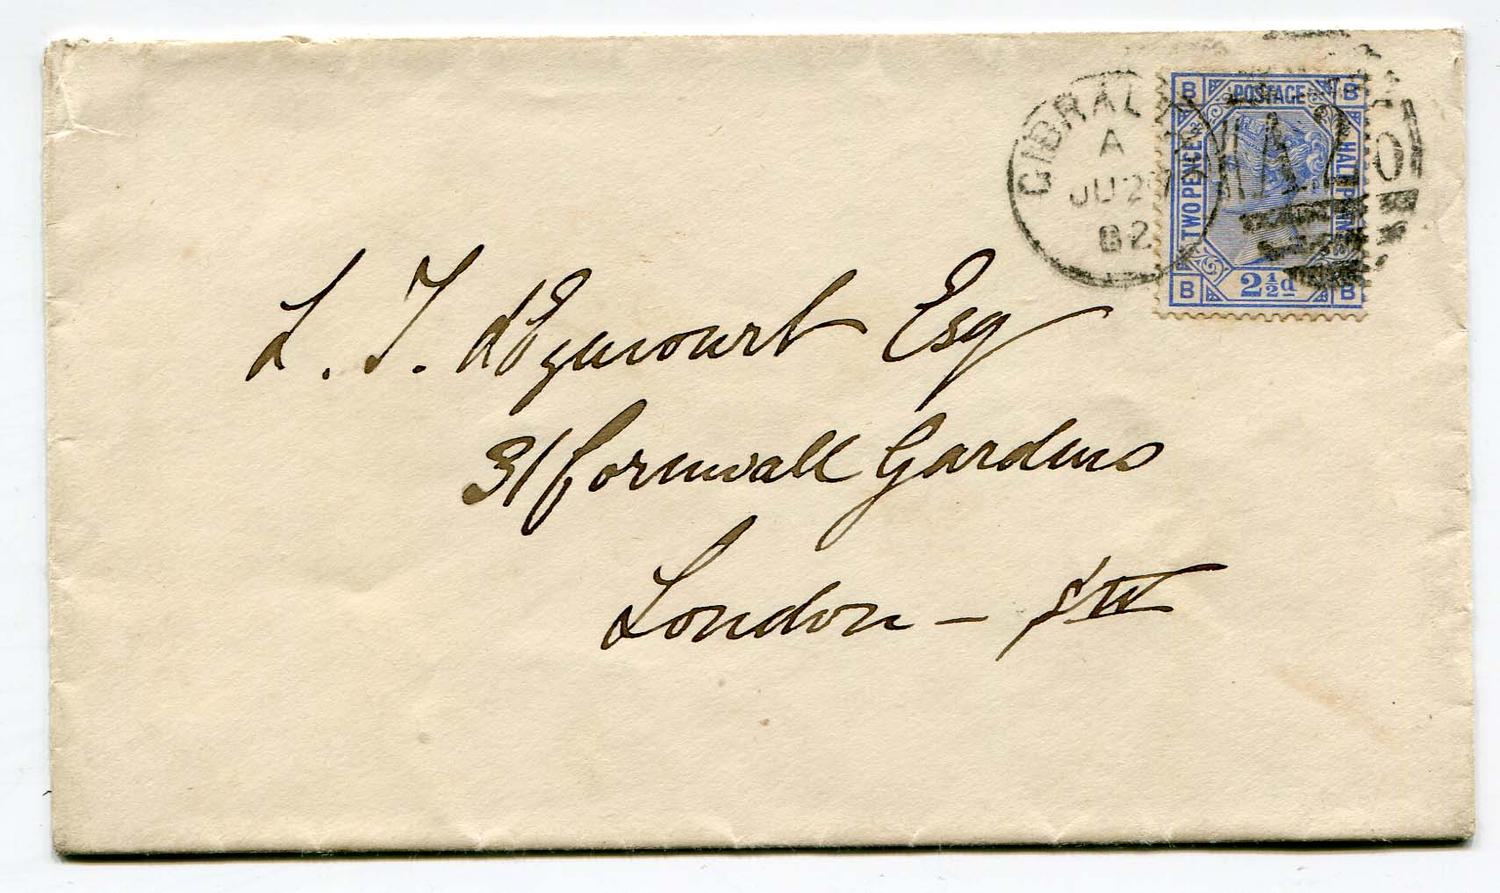 GIBRALTAR
A
JU 27
82
A26
B POSTAGE B
TWO PENCE
HALF PENNY
B 2½d B
L. T. d'Eyncourt Esq
31 Cornwall Gardens
London – SW